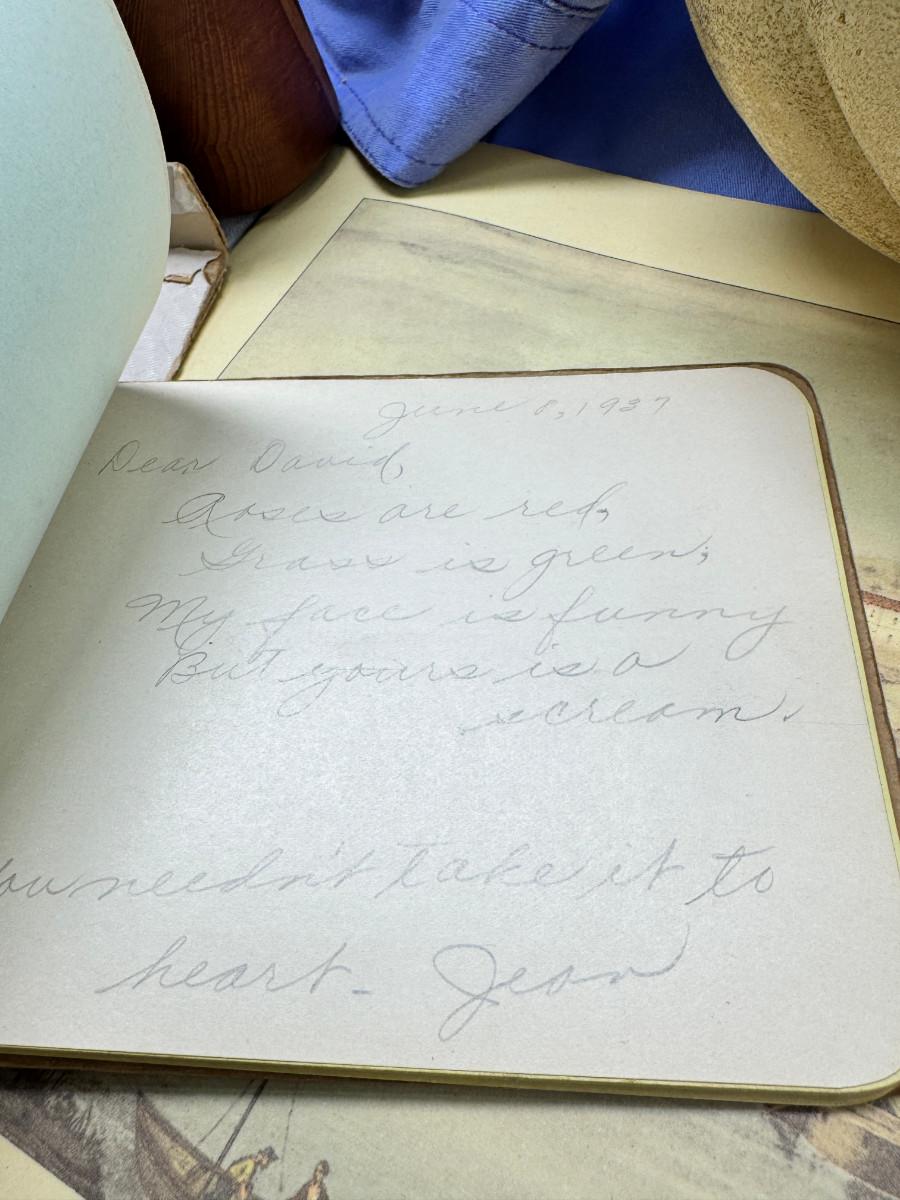 June 8, 1937
Dear David,
Roses are red,
Grass is green;
My face is funny
But yours is a
scream.
You needn't take it to
heart - Jean